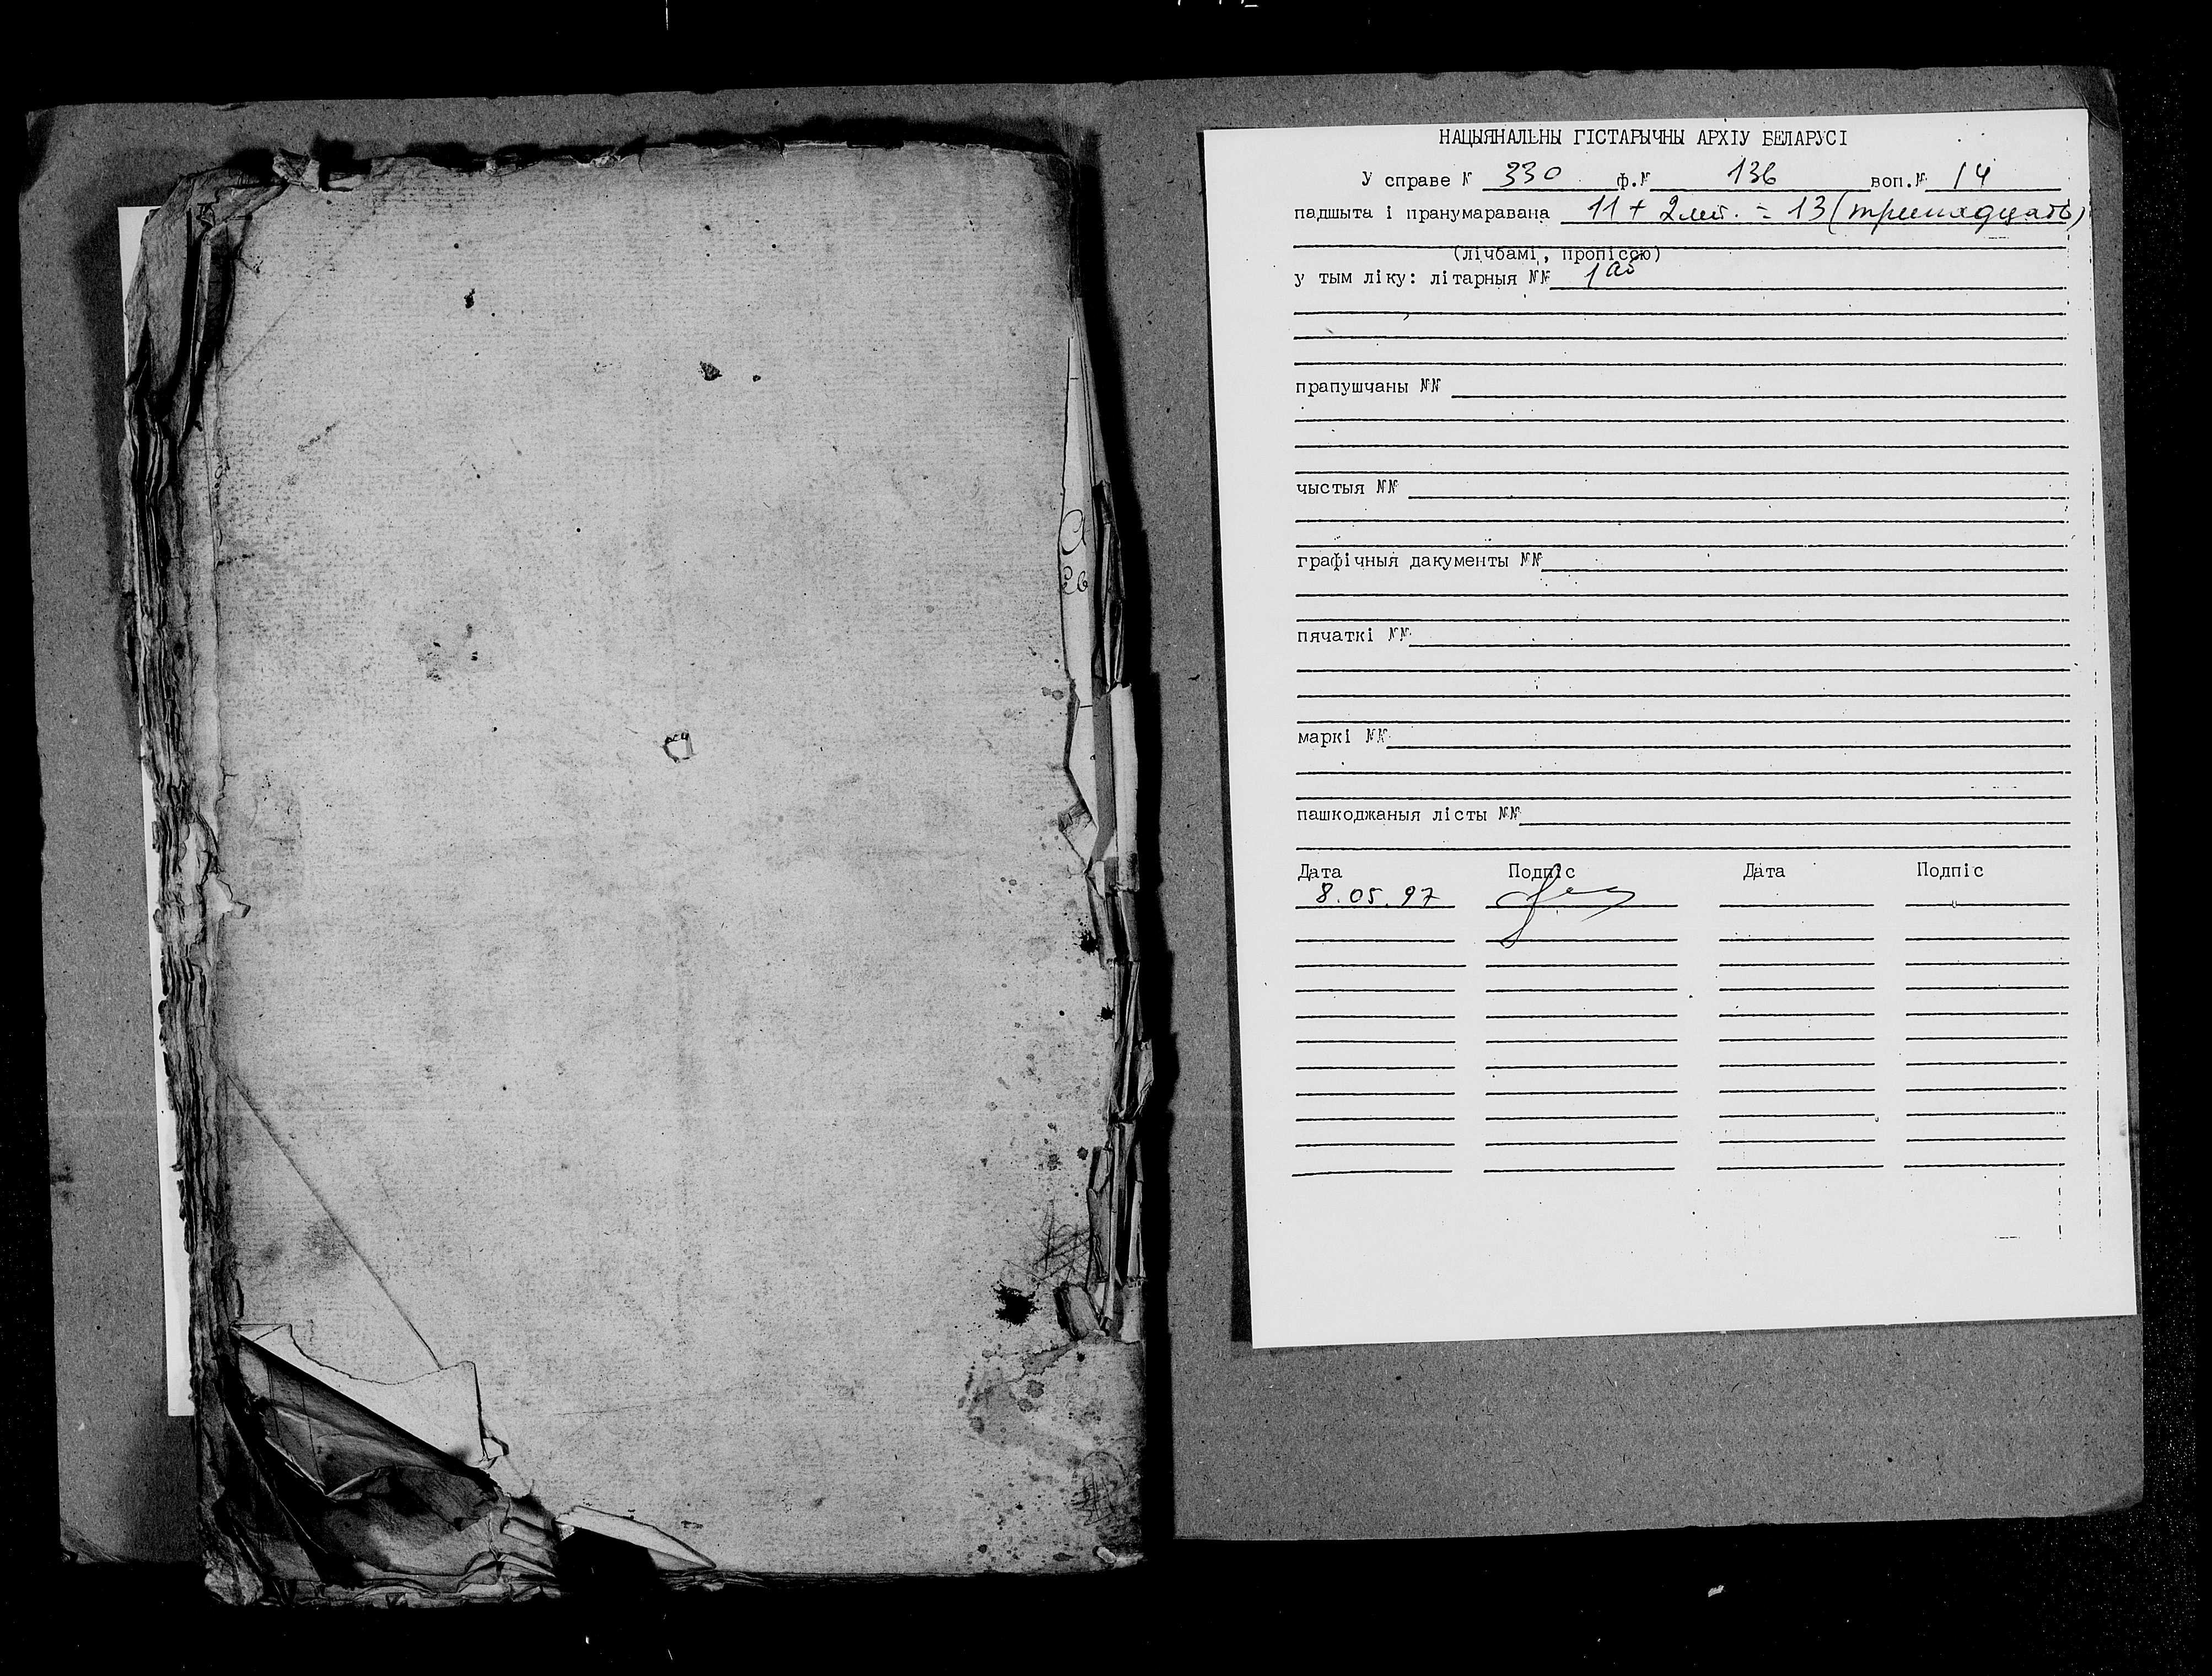 НАЦЫЯНАЛЬНЫ ГІСТАРЫЧНЫ АРХІУ БЕЛАРУСІ
У справе № 330 ф.№ 136 воп.№ 14
падшыта і пранумаравана 11 + 2 лит. = 13 (тринадцать)
(лічбамі, пропіссю)
у тым ліку: літарныя №№ 1аб
прапушчаны №№
чыстыя №№
графічныя дакументы №№
пячаткі №№
маркі №№
пашкоджаныя лісты №№
Дата Подпіс Дата Подпіс
8.05.97